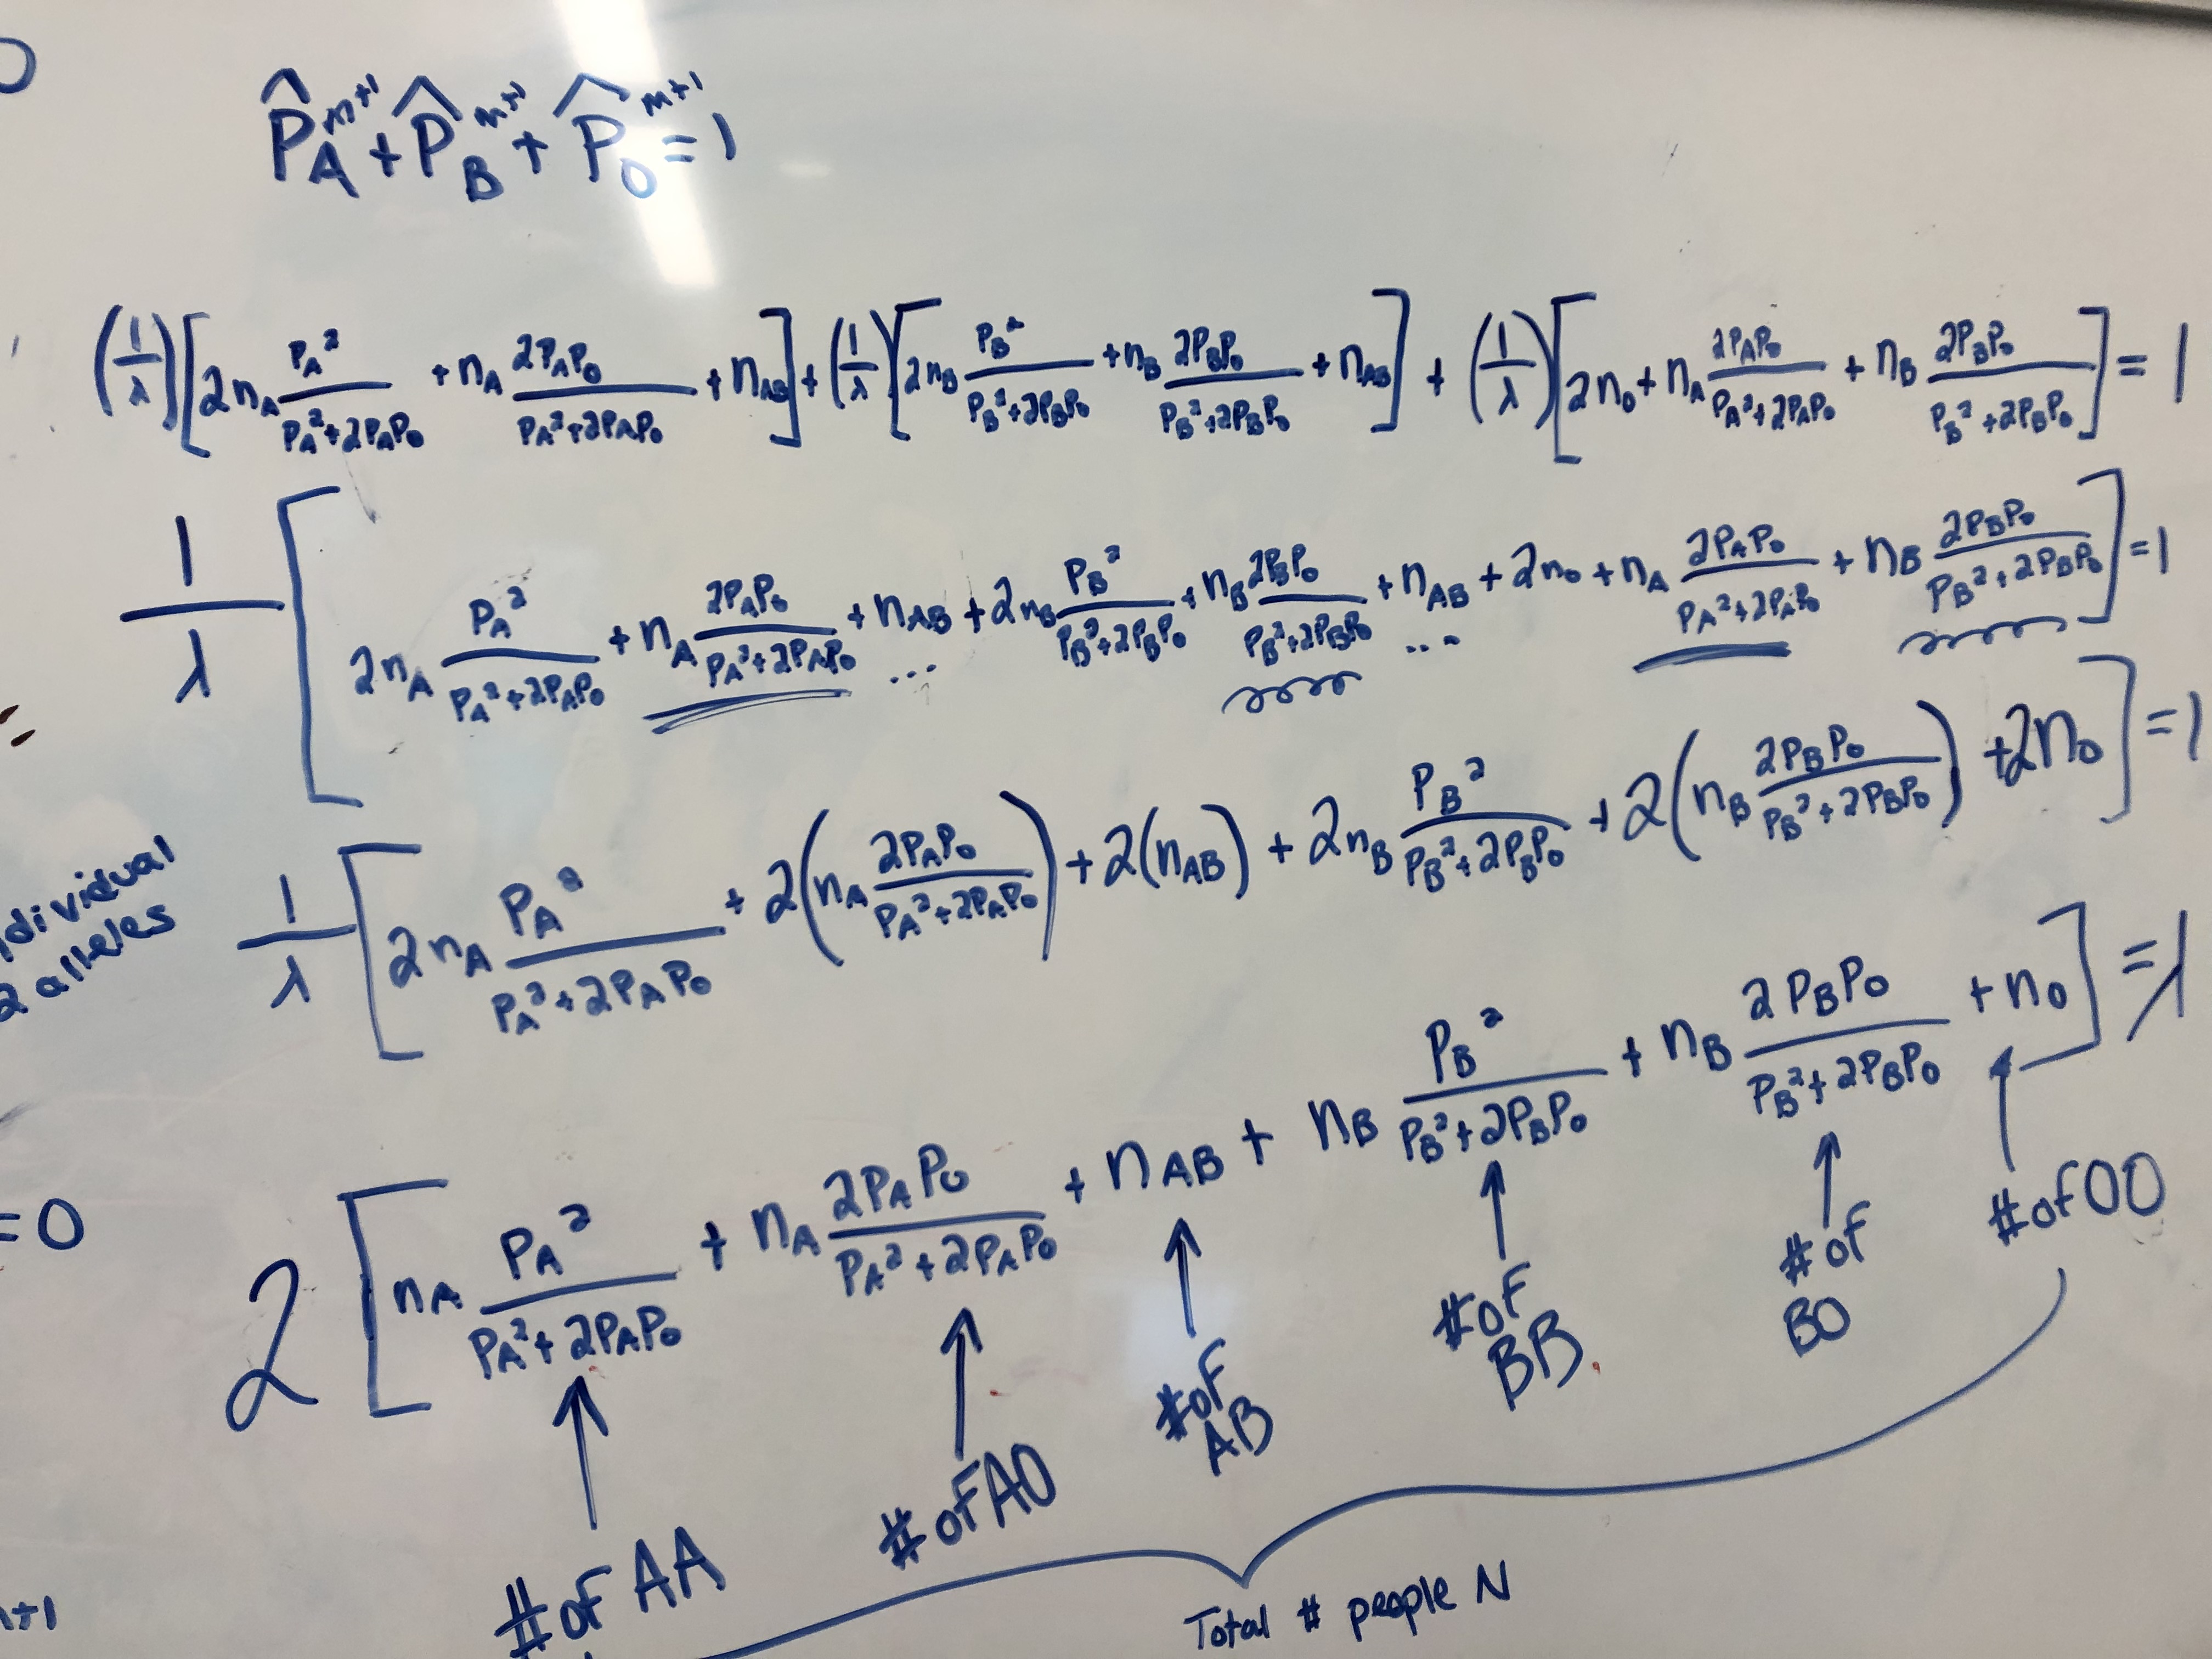 P̂_A^{m+1} + P̂_B^{m+1} + P̂_O^{m+1} = 1
(1/λ)[2n_A P_A²/(P_A²+2P_AP_O) + n_A 2P_AP_O/(P_A²+2P_AP_O) + n_AB] + (1/λ)[2n_B P_B²/(P_B²+2P_BP_O) + n_B 2P_BP_O/(P_B²+2P_BP_O) + n_AB] + (1/λ)[2n_O + n_A 2P_AP_O/(P_A²+2P_AP_O) + n_B 2P_BP_O/(P_B²+2P_BP_O)] = 1
1/λ [2n_A P_A²/(P_A²+2P_AP_O) + n_A 2P_AP_O/(P_A²+2P_AP_O) + n_AB + 2n_B P_B²/(P_B²+2P_BP_O) + n_B 2P_BP_O/(P_B²+2P_BP_O) + n_AB + 2n_O + n_A 2P_AP_O/(P_A²+2P_AP_O) + n_B 2P_BP_O/(P_B²+2P_BP_O)] = 1
1/λ [2n_A P_A²/(P_A²+2P_AP_O) + 2(n_A 2P_AP_O/(P_A²+2P_AP_O)) + 2(n_AB) + 2n_B P_B²/(P_B²+2P_BP_O) + 2(n_B 2P_BP_O/(P_B²+2P_BP_O)) + 2n_O] = 1
dividual
2 alleles
2 [n_A P_A²/(P_A²+2P_AP_O) + n_A 2P_AP_O/(P_A²+2P_AP_O) + n_AB + n_B P_B²/(P_B²+2P_BP_O) + n_B 2P_BP_O/(P_B²+2P_BP_O) + n_O] = λ
=0
# of AA
# of AO
# of AB
# of BB
# of BO
# of OO
+1
Total # people N